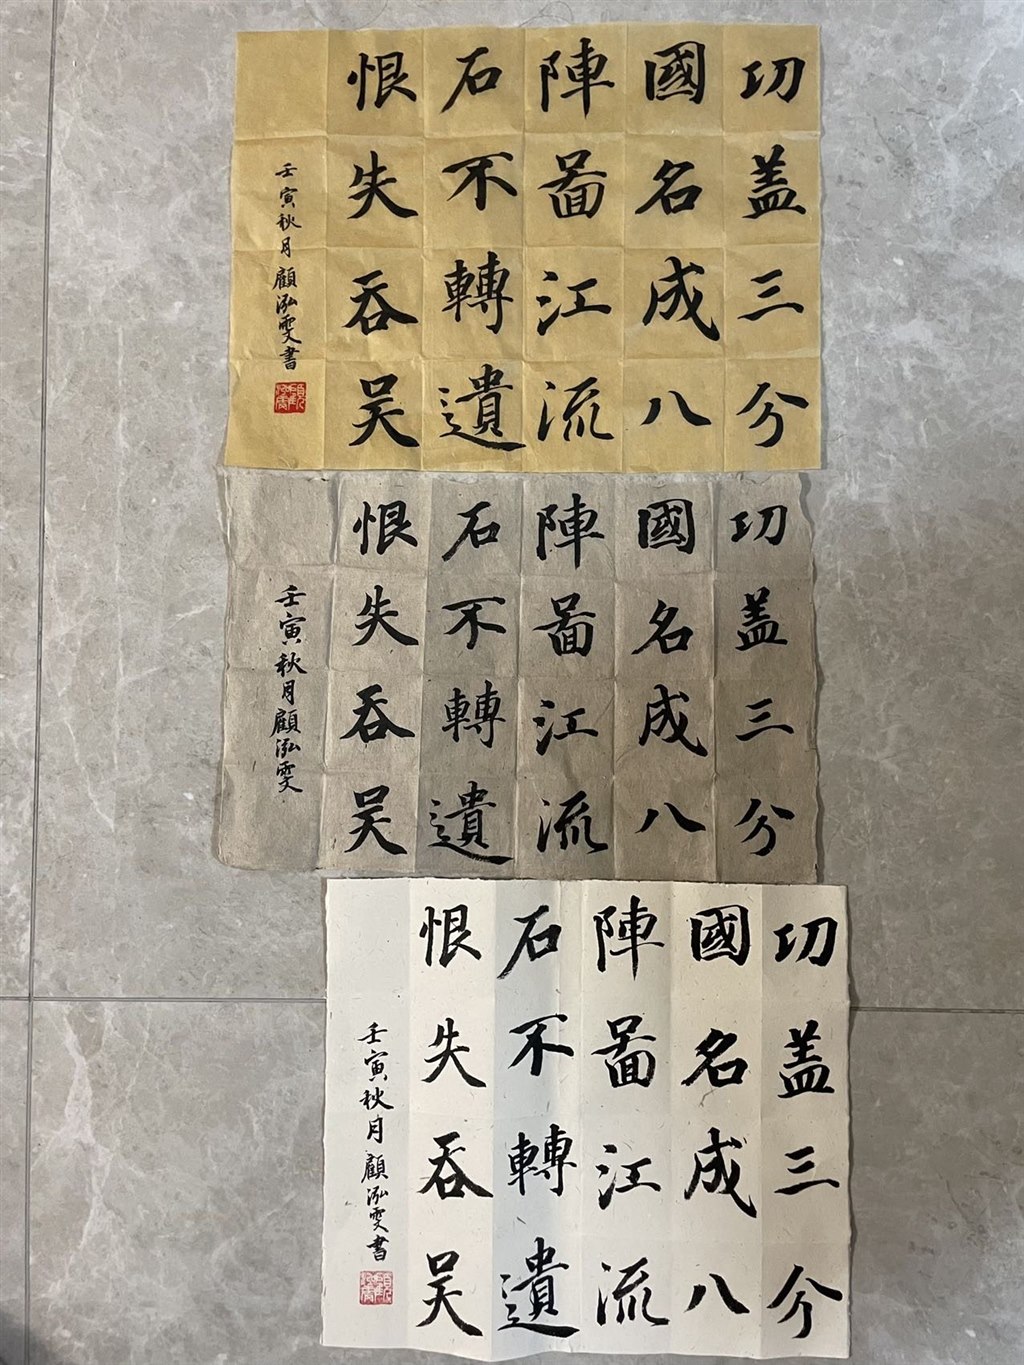 功盖三分
國名成八
陣啚江流
石不轉遺
恨失吞吴
壬寅秋月顧泓雯書
功盖三分
國名成八
陣啚江流
石不轉遺
恨失吞吴
壬寅秋月顧泓雯
功盖三分
國名成八
陣啚江流
石不轉遺
恨失吞吴
壬寅秋月顧泓雯書